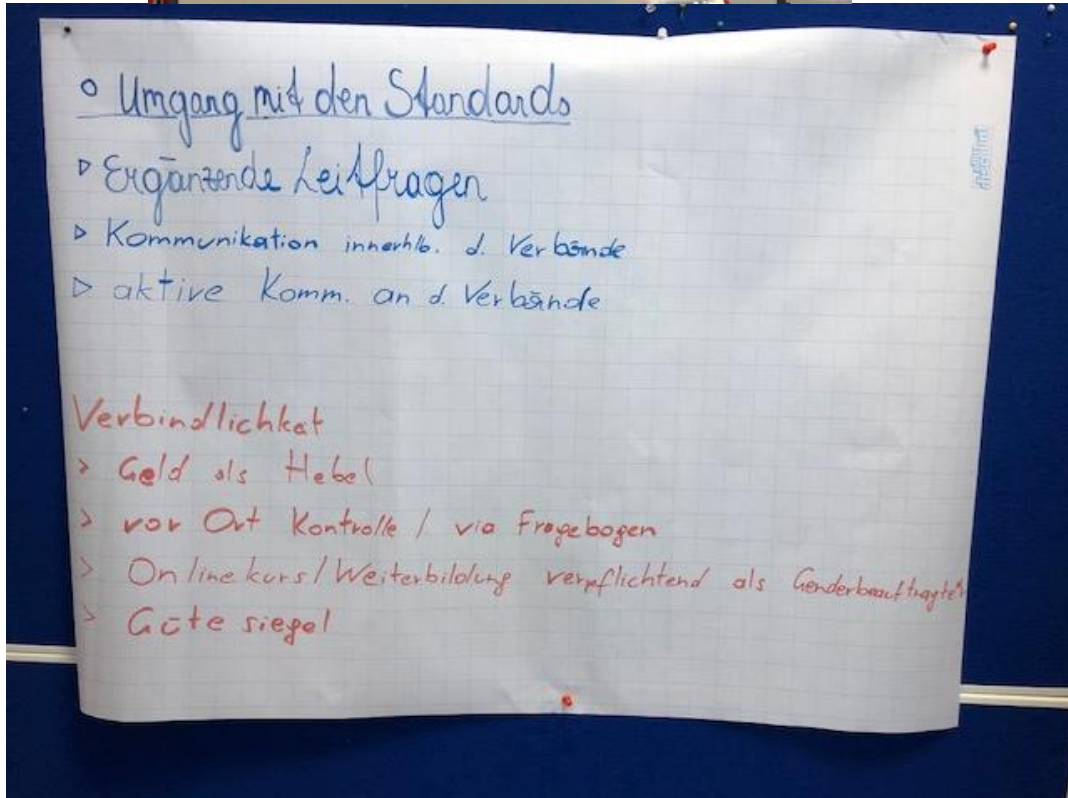 ° Umgang mit den Standards
▹ Ergänzende Leitfragen
▹ Kommunikation innerhlb. d. Verbände
▹ aktive Komm. an d. Verbände
Verbindlichket
> Geld als Hebel
> vor Ort Kontrolle / via Fragebogen
> Onlinekurs/Weiterbildung verpflichtend als Genderbeauftragte*r
> Gütesiegel